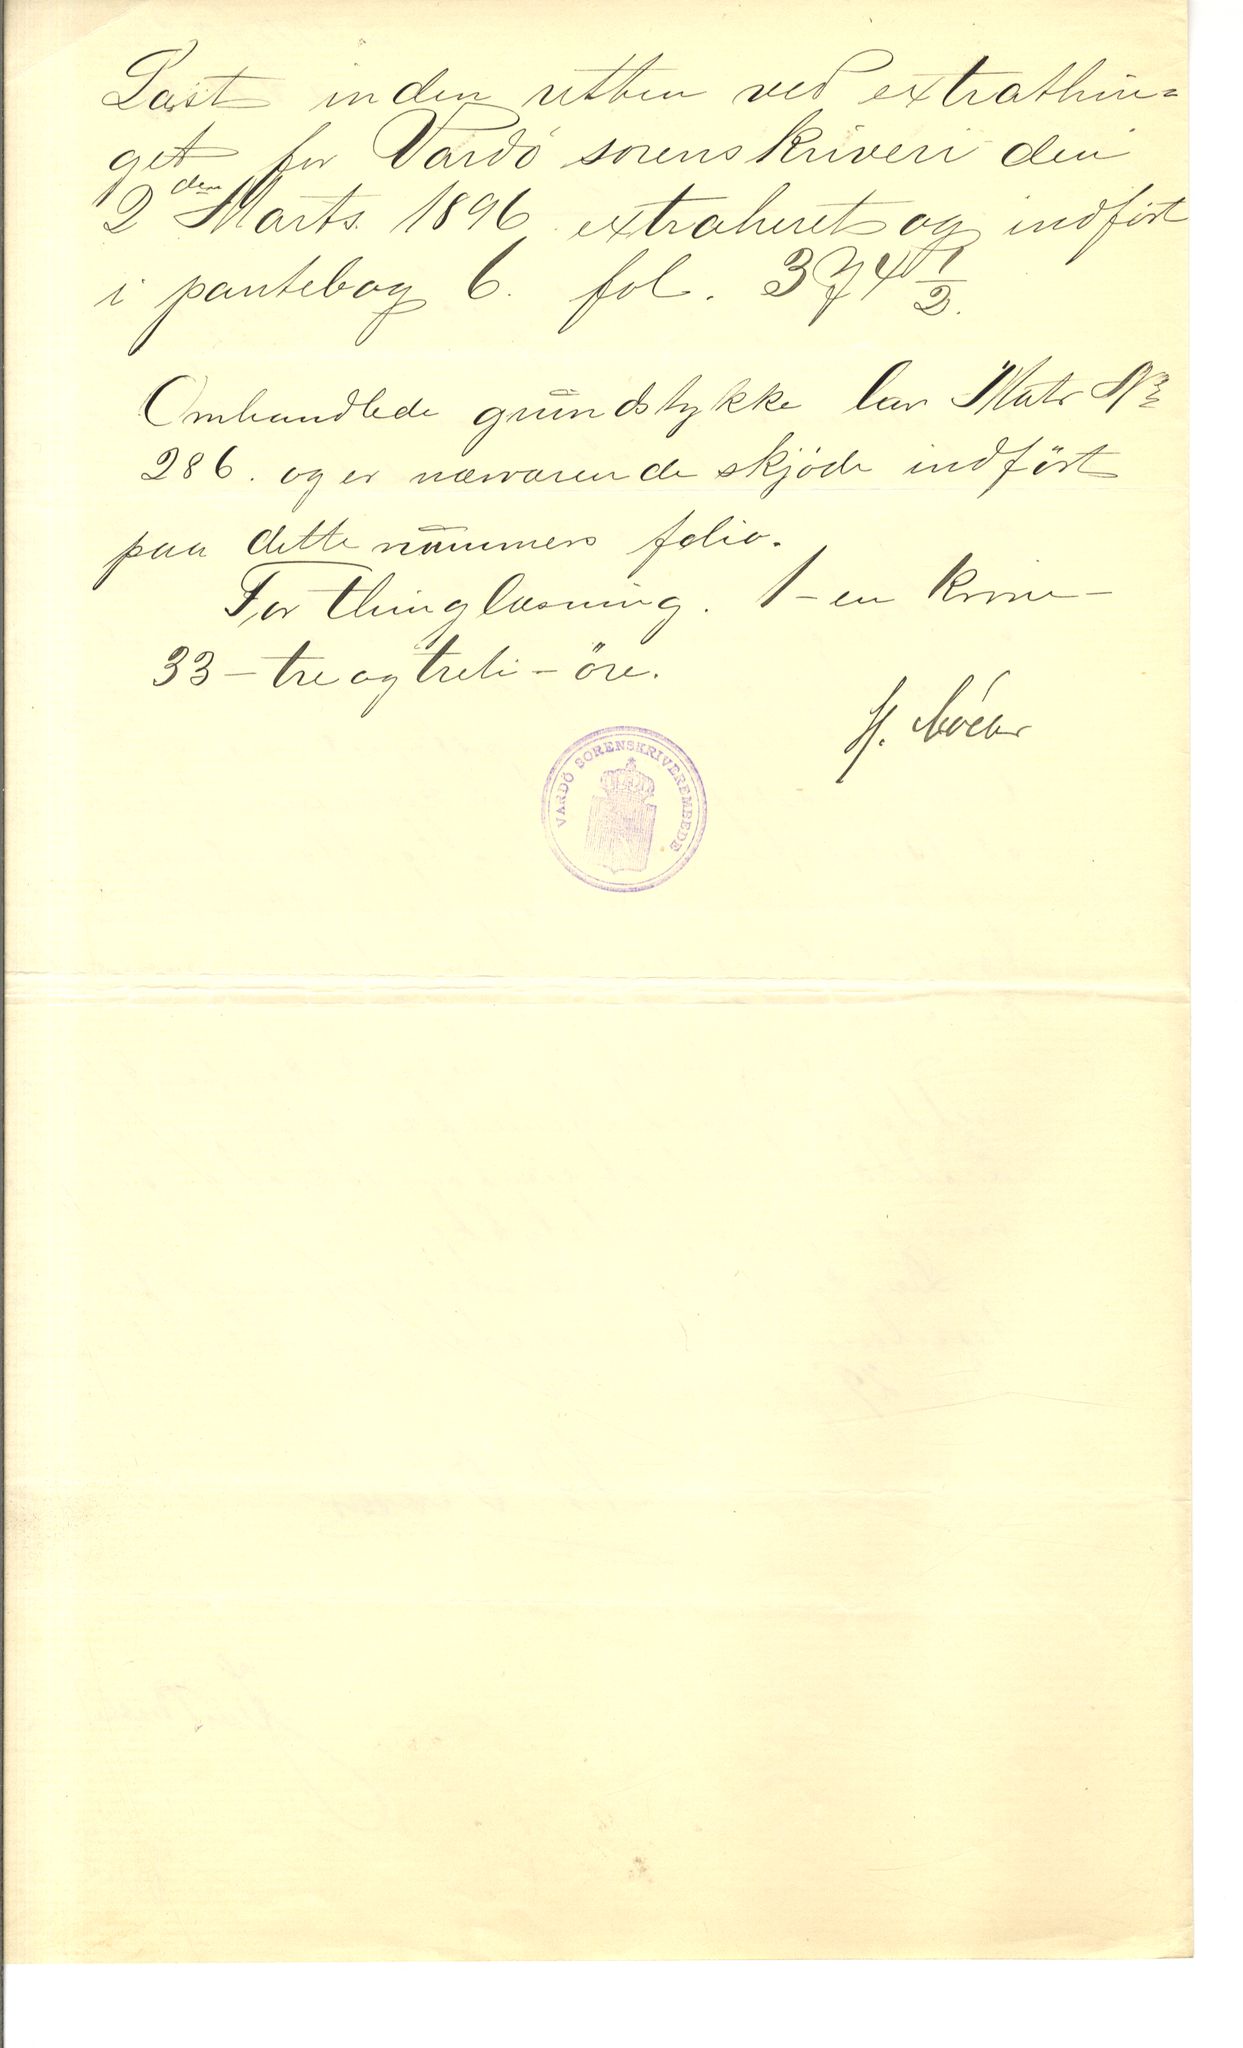 Læst inden retten ved extrathin=
get for Vardö sorenskriveri den
2den Marts 1896 extraheret og indfört
i pantebog 6. fol. 374 1/2.
Omhandlede grundstykke har Matr No
286. og er nærværende skjöde indfört
paa dette nummers folio.
For thinglæsning. 1 – en krone –
33 – tre og treti – öre.
H.
VARDÖ SORENSKRIVEREMBEDE